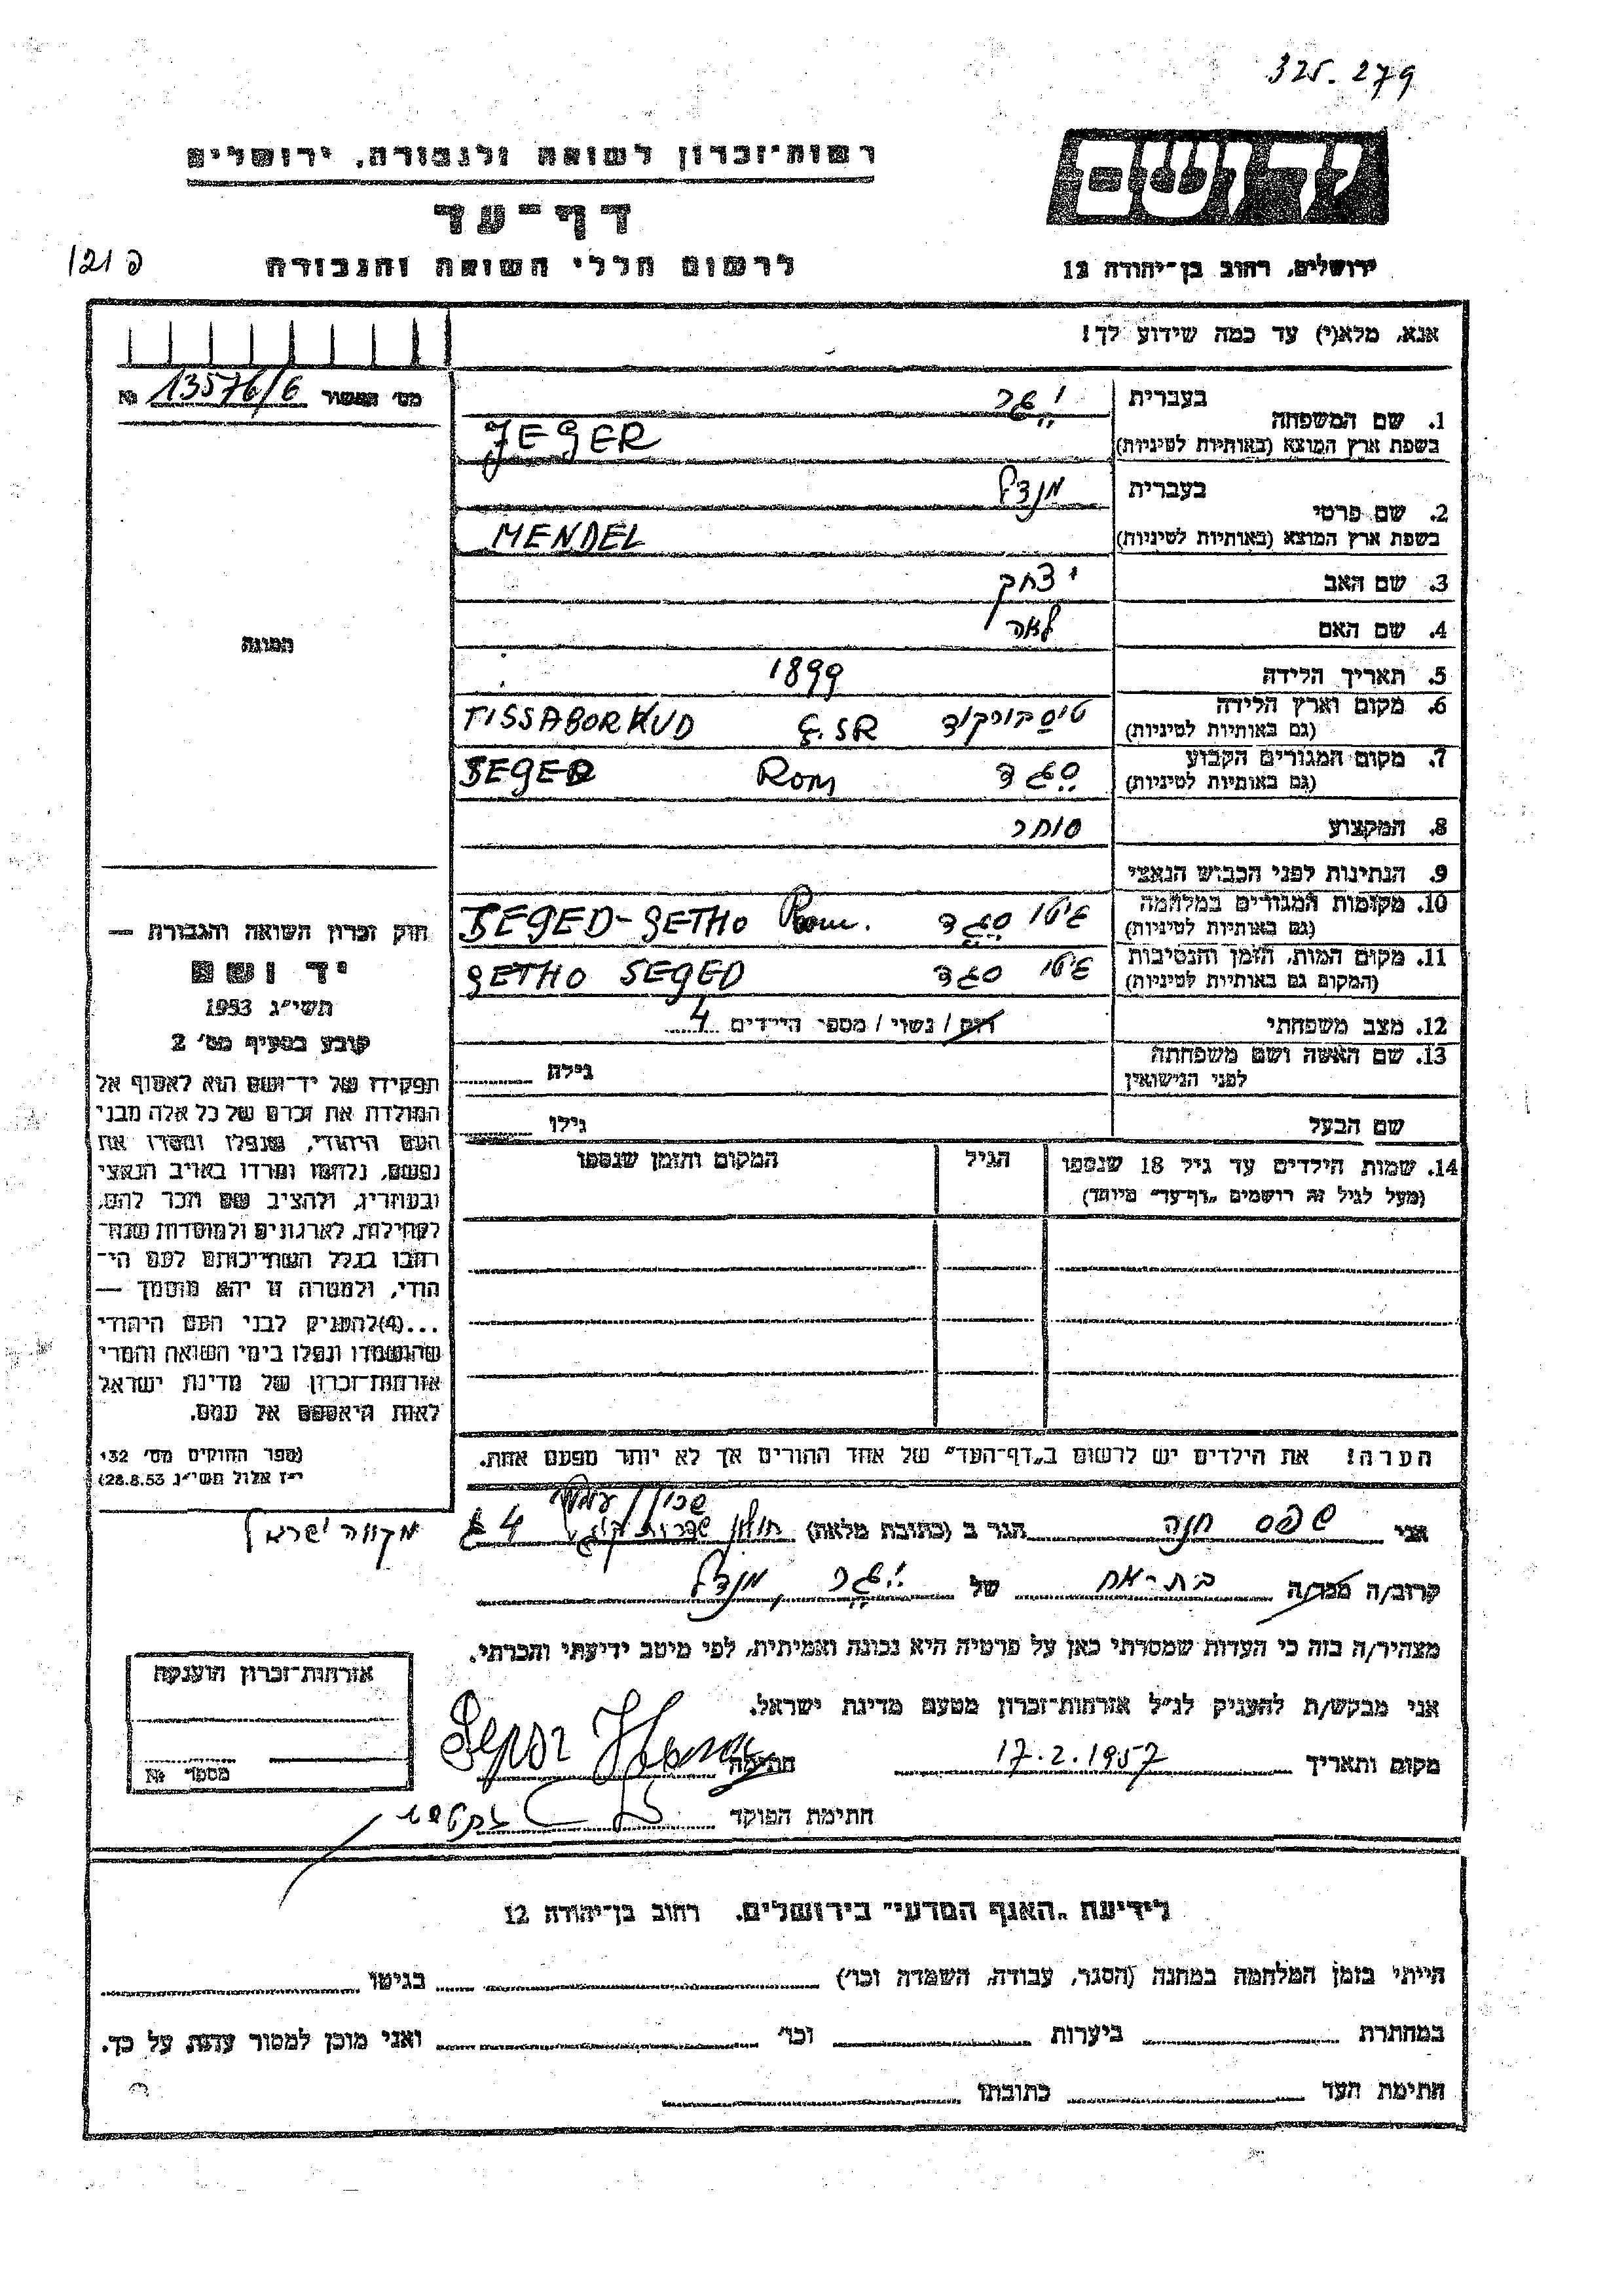 325.279
רשות־זכרון לשואה ולגבורה, ירושלים
יד ושם
דף־עד
לרשום חללי השואה והגבורה
ירושלים, רחוב בן־יהודה 12
אנא, מלא(י) עד כמה שידוע לך!
מס׳ № 13576/6
1. שם המשפחה
בעברית יגר
בשפת ארץ המוצא (באותיות לטיניות) JEGER
2. שם פרטי
בעברית מנדל
בשפת ארץ המוצא (באותיות לטיניות) MENDEL
3. שם האב יצחק
4. שם האם לאה
5. תאריך הלידה 1899
6. מקום וארץ הלידה
(גם באותיות לטיניות) TISSABORKUD
7. מקום המגורים הקבוע סגד
(גם באותיות לטיניות) Rom
8. המקצוע סוחר
9. הנתינות לפני הכבוש הנאצי
10. מקומות המגורים במלחמה גיטו סגד
(גם באותיות לטיניות) SEGED-GETHO Rom.
11. מקום המות, הזמן והנסיבות גיטו סגד
(המקום גם באותיות לטיניות) GETHO SEGED
12. מצב משפחתי רוק / נשוי / מספר הילדים 4
13. שם האשה ושם משפחתה
לפני הנישואין
גילה
שם הבעל
גילו
14. שמות הילדים עד גיל 18 שנספו
(מעל לגיל זה רושמים „דף־עד” מיוחד)
הגיל
המקום והזמן שנספו
הערה! את הילדים יש לרשום ב„דף־העד” של אחד ההורים אך לא יותר מפעם אחת.
התמונה
חוק זכרון השואה והגבורה —
יד ושם
תשי״ג 1953
קובע בסעיף מס׳ 2
תפקידו של יד־ושם הוא לאסוף אל
המולדת את זכרם של כל אלה מבני
העם היהודי, שנפלו ומסרו את
נפשם, נלחמו ומרדו באויב הנאצי
ובעוזריו, ולהציב שם וזכר להם,
לקהילות, לארגונים ולמוסדות שנח־
רבו בגלל השתייכותם לעם הי־
הודי, ולמטרה זו יהא מוסמך —
...(4)להעניק לבני העם היהודי
שהושמדו ונפלו בימי השואה והמרי
אזרחות־זכרון של מדינת ישראל
לאות היאספם אל עמם.
(ספר החוקים מס׳ 132
י״ז אלול תשי״ג 28.8.53)
אני שפס חנה הגר ב (כתובת מלאה) חולון
מקווה ישראל
קרוב/ה מכר/ה בת-אח של יגר מנדל
מצהיר/ה בזה כי העדות שמסרתי כאן על פרטיה היא נכונה ואמיתית, לפי מיטב ידיעתי והכרתי.
אני מבקש/ת להעניק לנ״ל אזרחות־זכרון מטעם מדינת ישראל.
מקום ותאריך 17.2.1957 חתימה
חתימת הפוקד
אזרחות־זכרון הוענקה
מספר №
לידיעת „האגף המדעי” בירושלים, רחוב בן־יהודה 12
הייתי בזמן המלחמה במחנה (הסגר, עבודה, השמדה וכו׳) בגיטו
במחתרת ביערות וכו׳ ואני מוכן למסור עדות על כך.
חתימת העד כתובתו